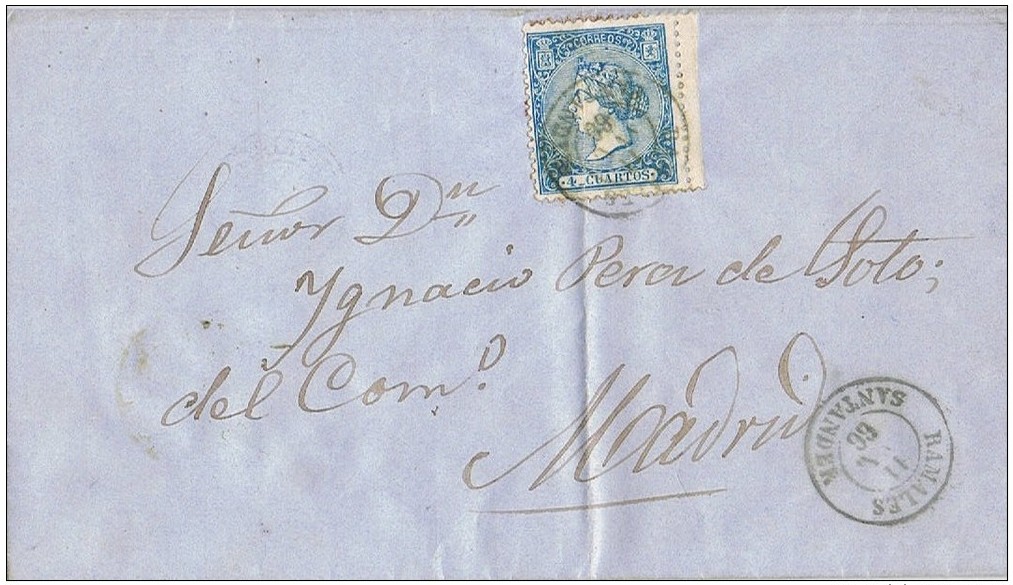 CORREOS
4 CUARTOS
66
Señor Dn
Ygnacio Perez de Soto;
del Com.º
Madrid
RAMALES
11
66
SANTANDER